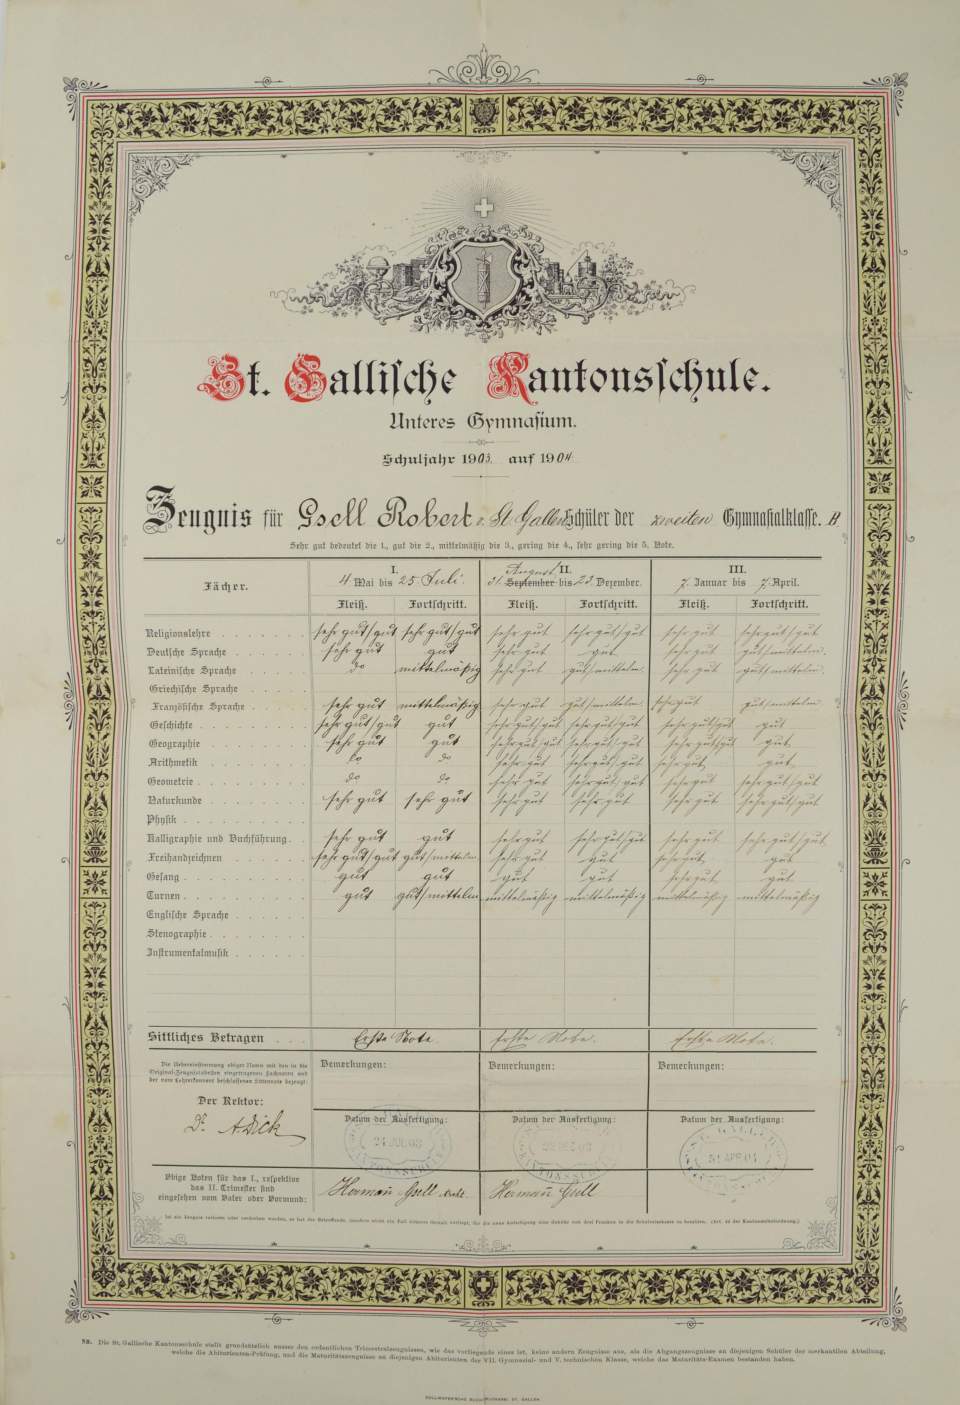 St. Gallische Kantonsschule.
Unteres Gymnasium.
Schuljahr 1903. auf 1904
Zeugnis für Gsell Robert v. St. Gallen Schüler der zweiten Gymnasialklasse. B
Sehr gut bedeutet die 1., gut die 2., mittelmäßig die 3., gering die 4., sehr gering die 5. Note.
Fächer. I. 4 Mai bis 25. Juli. II. 31. September August bis 23. Dezember. III. 7. Januar bis 7. April.
Fleiß. Fortschritt. Fleiß. Fortschritt. Fleiß. Fortschritt.
Religionslehre sehr gut/gut sehr gut/gut sehr gut sehr gut/gut sehr gut sehr gut/gut
Deutsche Sprache sehr gut gut sehr gut gut sehr gut gut/mittelm.
Lateinische Sprache do mittelmäßig sehr gut gut/mittelm. sehr gut gut/mittelm.
Griechische Sprache
Französische Sprache sehr gut mittelmäßig sehr gut gut/mittelm. sehr gut gut/mittelm
Geschichte sehr gut/gut gut sehr gut/gut sehr gut/gut sehr gut/gut gut
Geographie sehr gut gut sehr gut/gut sehr gut/gut sehr gut/gut gut.
Arithmetik do do sehr gut sehr gut/gut sehr gut, gut.
Geometrie do do sehr gut sehr gut/gut sehr gut sehr gut/gut
Naturkunde sehr gut sehr gut sehr gut sehr gut sehr gut sehr gut/gut
Physik
Kalligraphie und Buchführung sehr gut gut sehr gut sehr gut/gut sehr gut sehr gut/gut.
Freihandzeichnen sehr gut/gut gut/mittelm. sehr gut gut sehr gut, gut
Gesang gut gut gut gut sehr gut gut
Turnen gut gut/mittelm. mittelmäßig mittelmäßig mittelmäßig mittelmäßig
Englische Sprache
Stenographie
Instrumentalmusik
Sittliches Betragen Erste Note. Erste Note. Erste Note.
Die Uebereinstimmung obiger Noten mit den in die
Original-Zeugnistabellen eingetragenen Fachnoten und
der vom Lehrerkonvent beschlossenen Sittennote bezeugt:
Der Rektor:
Dr. A Dick
Bemerkungen: Bemerkungen: Bemerkungen:
Datum der Ausfertigung: Datum der Ausfertigung: Datum der Ausfertigung:
KANTONSSCHULE
Obige Noten für das I., respektive
das II. Trimester sind
eingesehen vom Vater oder Vormund:
Hermann Gsell Hermann Gsell
NB. Die St. Gallische Kantonsschule stellt grundsätzlich ausser den ordentlichen Trimestralzeugnissen, wie das vorliegende eines ist, keine andern Zeugnisse aus, als die Abgangszeugnisse an diejenigen Schüler der merkantilen Abteilung,
welche die Abiturienten-Prüfung, und die Maturitätszeugnisse an diejenigen Abiturienten der VII. Gymnasial- und V. technischen Klasse, welche das Maturitäts-Examen bestanden haben.
ZOLLIKOFER'SCHE BUCHDRUCKEREI ST. GALLEN